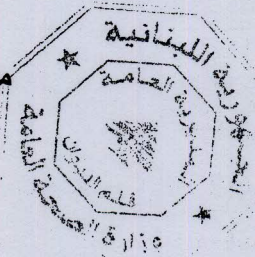 الجمهورية اللبنانية
وزارة الصحة العامة
المديرية العامة
قلم الديوان